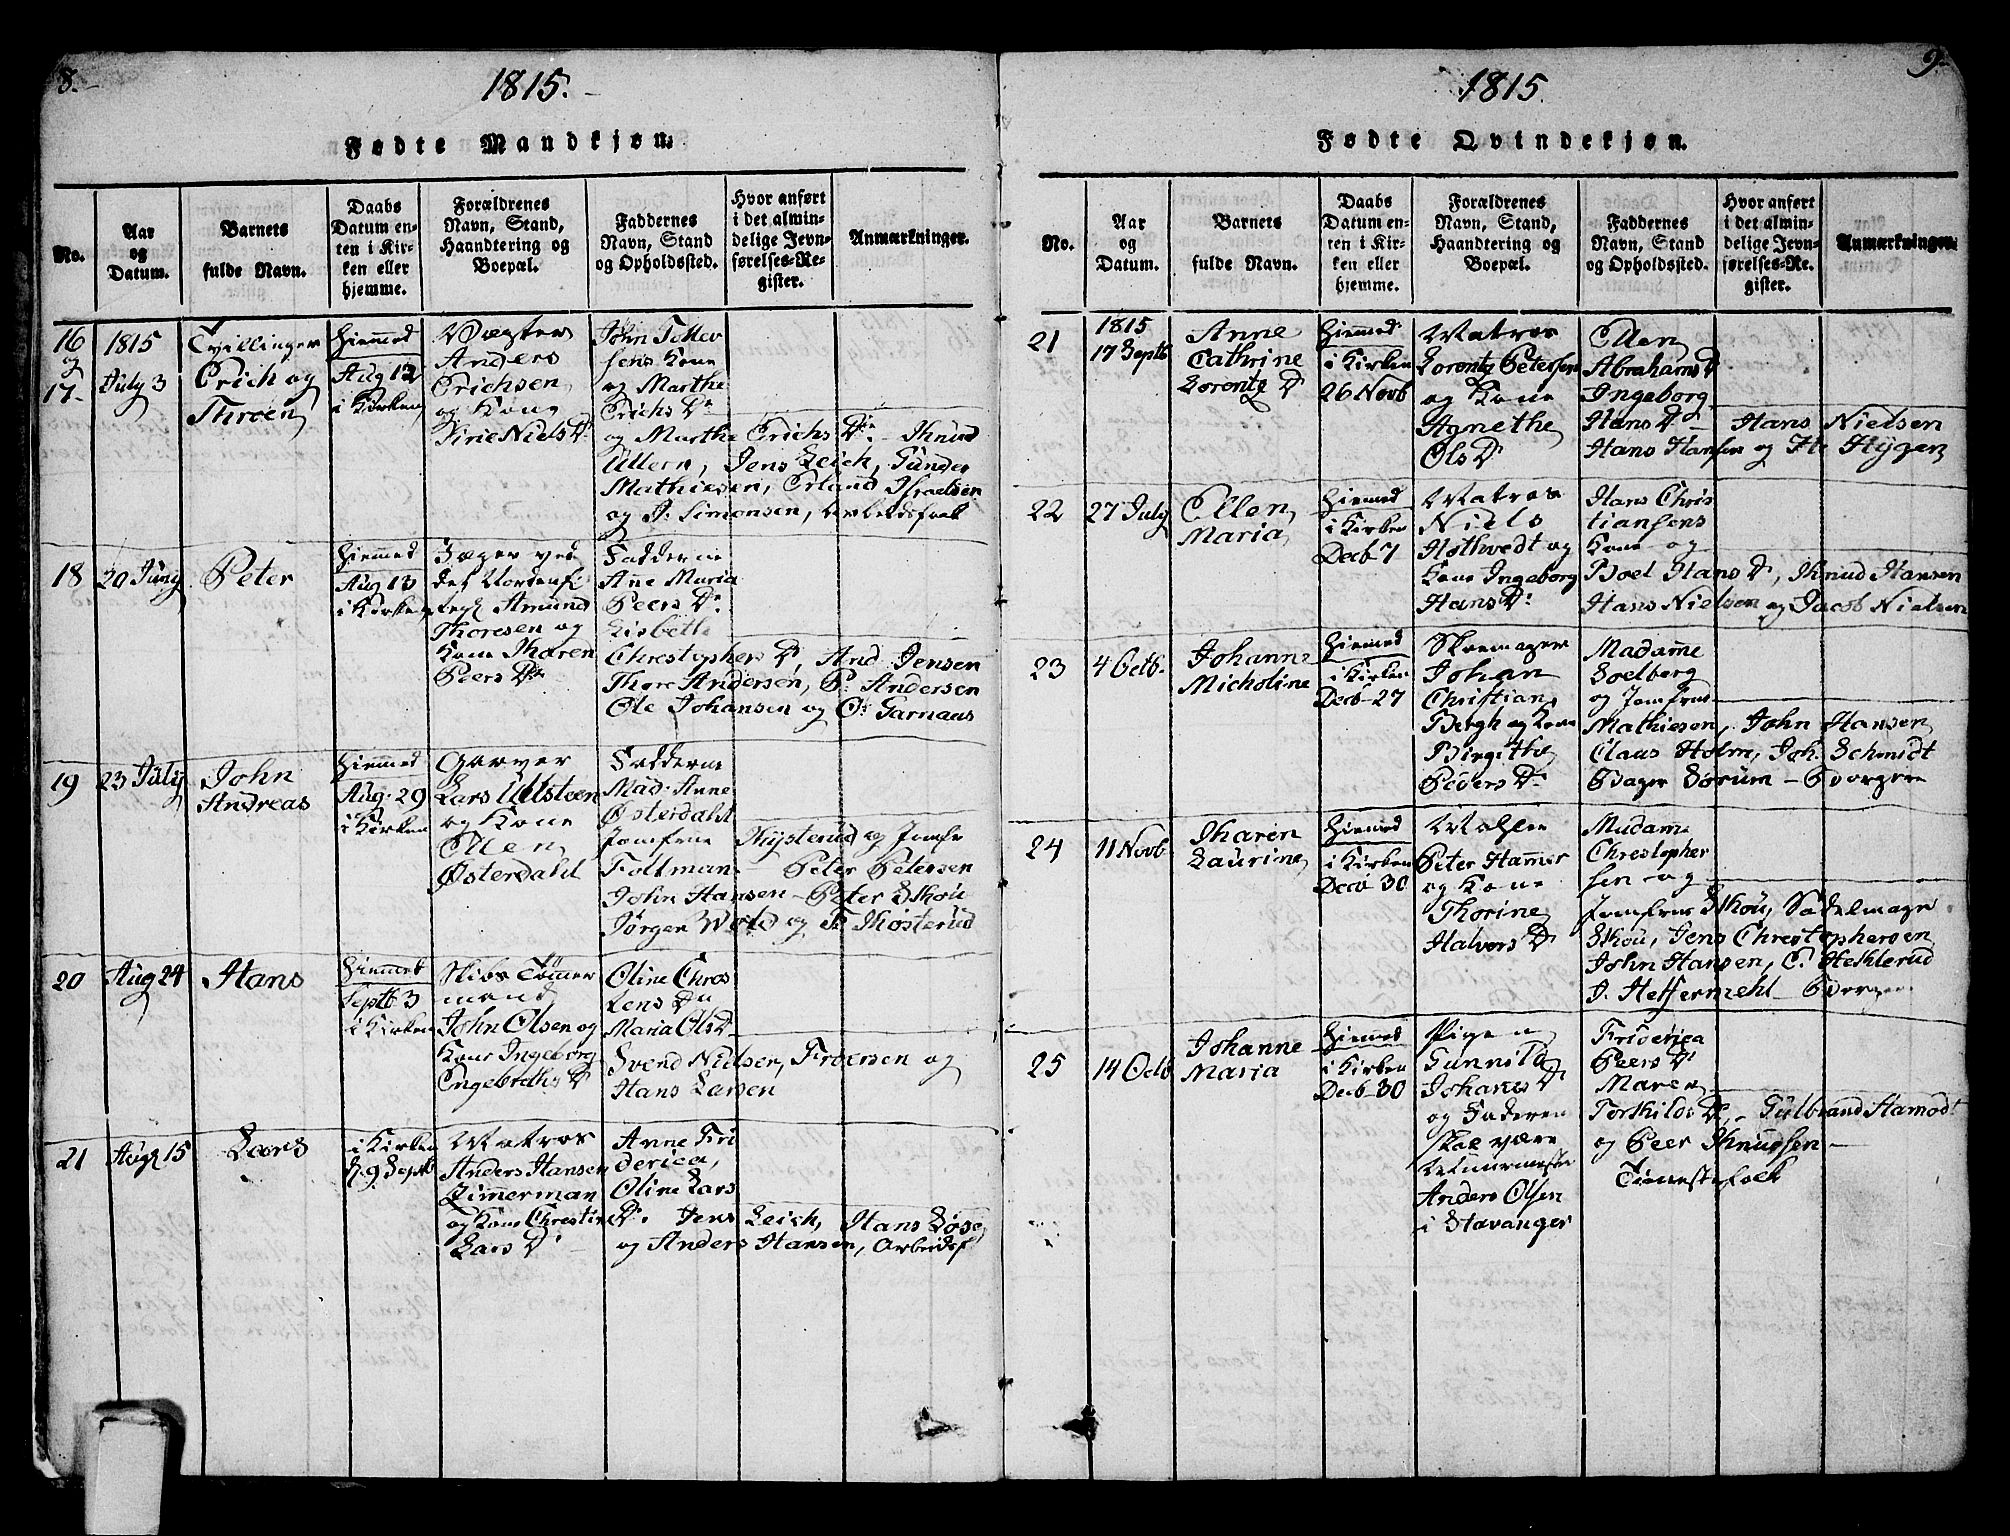 8.
1815.
Fødte Mandkjøn.
No.
Aar
og
Datum.
Barnets
fulde Navn.
Daabs
Datum en-
ten i Kir-
ken eller
hjemme.
Forældrenes
Navn, Stand,
Haandtering og
Boepæl.
Faddernes
Navn, Stand
og Opholdssted.
Hvor anført
i det almin-
delige Jevn-
førelses-Re-
gister.
Anmærkninger.
16
og
17.
1815
July 3
Tvillinger
Erich og
Throen
Hiemmed
Aug 12
i Kirken
Vægter
Anders
Erichsen
og Kone
Sirie Niels Dr
John Tollev
sens Kone
og Marthe
Erichs Dr
og Marthe Erichs Dr. Knud
Ullern, Jens Leich, Gunder
Mathiesen, Erland Israelsen
og J. Simonsen, Arbeidsfolk
18
20 Juny
Peter
Hiemmed
Aug 13
i Kirken
Jæger ved
det Nordenfi
Amund
Thoresen og
Kone Karen
Peers Dr
Fadderne
Ane Maria
Peers Dr
Lisbeth
Christopher Dr, And Jensen
Thore Andersen, P. Andersen
Ole Johansen og O. Garnaas
19
23 July
John
Andreas
Hiemmed
Aug. 29
i Kirken
Garver
Lars Ullsteen
og Kone
Ellen
Østerdahl
Fadderne
Mad. Anne
Østerdahl
Jomfrue Thysterud og Jomfr
Foltman - Peter Petersen
John Hansen - Peter Skou
Jørgen Wold og F. Kosterud
20
Aug 24
Hans
Hiemmed
Septb 3
i Kirken
Skibs Tømer
mand
John Olsen og
Kone Ingeborg
Engebreths Dr
Oline Chris
tens Dr
Maria Ols Dr
Svend Nielsen, Froersen og
Hans Larsen
21
Aug 15
Lars
i Kirken
d. 9 Septb
Matros
Anders Hansen
Zimmerman
og Kone Christin
Lars Dr
Anne Fri
derica,
Oline Lars
Dr. Jens Leich, Hans
og Anders Hansen, Arbeidsf
9.
1815.
Fødte Qvindekjøn.
No.
Aar
og
Datum.
Barnets
fulde Navn.
Daabs
Datum en-
ten i Kir-
ken eller
hjemme.
Forældrenes
Navn, Stand,
Haandtering og
Boepæl.
Faddernes
Navn, Stand
og Opholdssted.
Hvor anført
i det almin-
delige Jevn-
førelses-Re-
gister.
Anmærkninger.
21
1815
17 Septb
Anne
Cathrine
Lorentz Dr
Hiemmed
i Kirken
26 Novb
Matros
Lorentz Petersen
og Kone
Agnethe
Ols Dr
Ellen
Abrahams Dr
Ingeborg
Hans Dr - Hans Nielsen
Hans Hansen og Hr Hygen
22
27 July
Ellen
Maria
Hiemmed
i Kirken
Decb 7
Matros
Niels
Hothvedt og
Kone Ingeborg
Hans Dr
Hans Chris
tiansens
Kone og
Boel Hans Dr, Knud Hansen
Hans Nielsen og Jacob Nielsen
23
4 Octb.
Johanne
Micholine
Hiemmed
i Kirken
Decb 27
Skoemager
Johan
Christian
Bergh og Kone
Birgithe
Peders Dr
Madamme
Soelberg
og Jomfrue
Mathiesen, John Hansen
Claus Holm, Joh. Schmidt
Bager Sørum - Borgere
24
11 Novb.
Karen
Laurine
Hiemmed
i Kirken
Decb 30
Peter Hammer
og Kone
Thorine
Halvors Dr
Madame
Christopher
sen og
Jomfrue Skou, Sadelmager
Skou, Jens Christophersen
John Hansen, C. Heklerud
J. Heffermehl - Borger
25
14 Octb
Johanne
Maria
Hiemmed
i Kirken
Decb 30
Pigen
Gunnild
Johanes Dr
og Faderen
skal være
Anders Olsen
i Stavanger
Friderica
Peers Dr
Maren
Torkilds Dr, Gulbrand Hamodt
og Peer Knudsen -
Tienestefolk